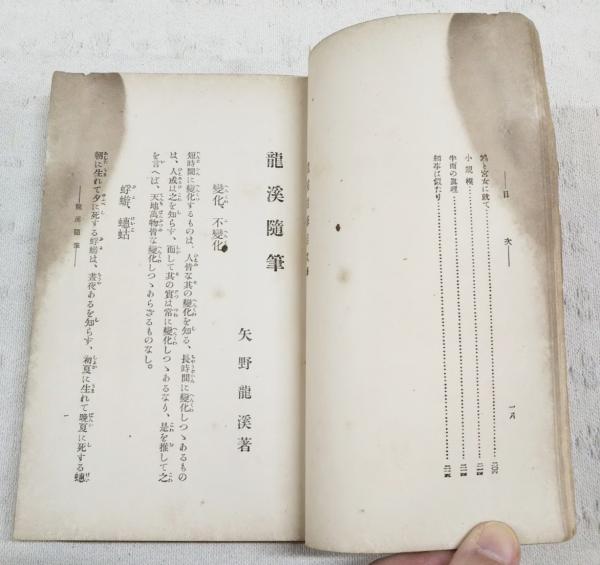 目次
一八
鴆と宮女に就て
小規模
半面の眞理
頗事は似たり
龍溪隨筆
矢野龍溪著
變化、不變化
短時間に變化するものは、人皆な其の變化を知る、長時間に變化しつゝあるもの
は、人或は之を知らず、而して其の實は常に變化しつゝあるなり、是を推して之
を言へば、天地萬物皆な變化しつゝあらざるものなし。
蜉蝣、蟪蛄
朝に生れて夕に死する蜉蝣は、晝夜あるを知らず、初夏に生れて晩夏に死する蟪
龍溪隨筆
一